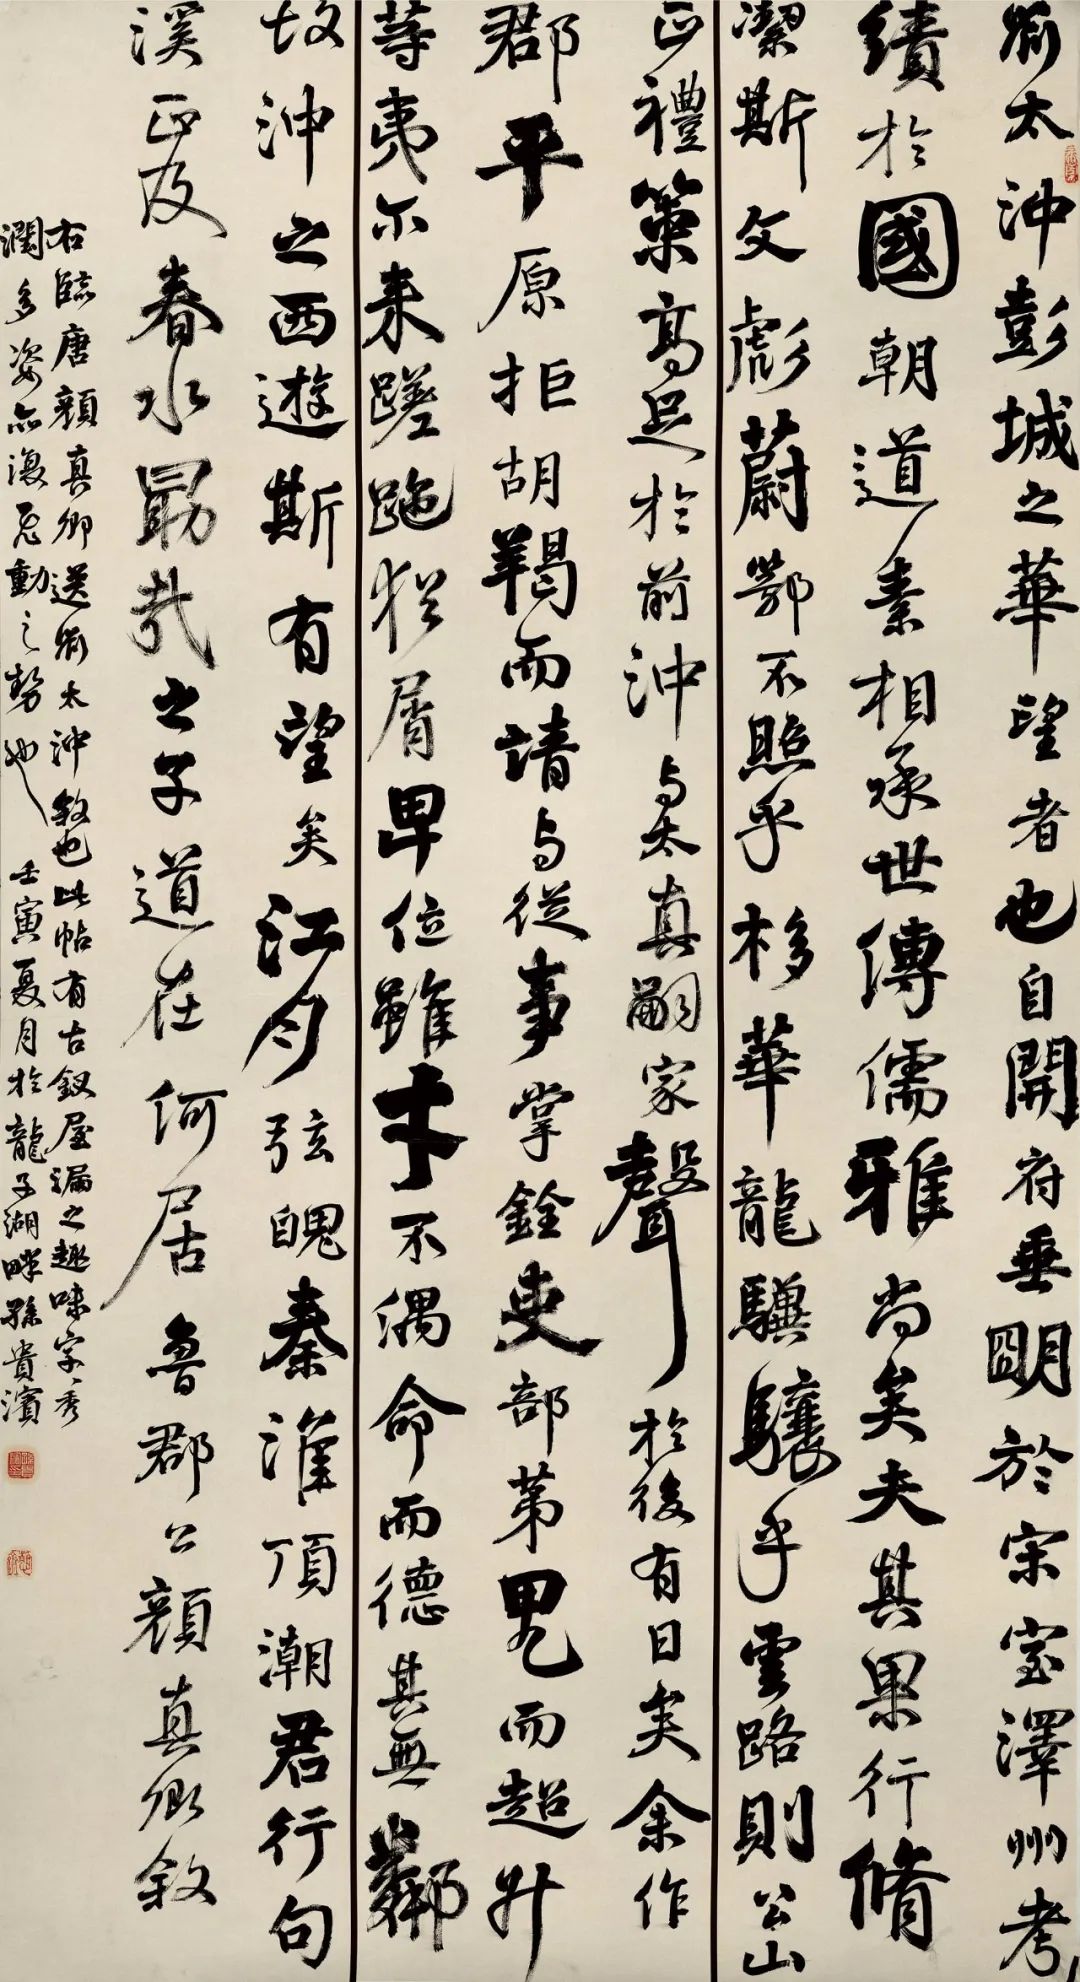 劉太沖彭城之華望者也自開府垂明於宋室澤州考
績於國朝道素相承世傳儒雅尚矣夫其果行脩
潔斯文彪蔚鄂不照乎移華龍驥驤乎雲路則公山
正禮策高足於前沖與太真嗣家聲於後有日矣余作
郡平原拒胡羯而請與從事掌銓吏部第甲而超升
等夷尓来蹉跎猶屑卑位雖才不偶命而德其無鄰
故沖之西遊斯有望矣江月弦魄秦淮頂潮君行句
溪正及春水勗哉之子道在何居魯郡公顔真卿敘
右臨唐顔真卿送劉太沖敘也此帖有古釵屋漏之趣味字字秀
潤多姿亦復飛動之勢也 壬寅夏月於龍子湖畔孫貴濱